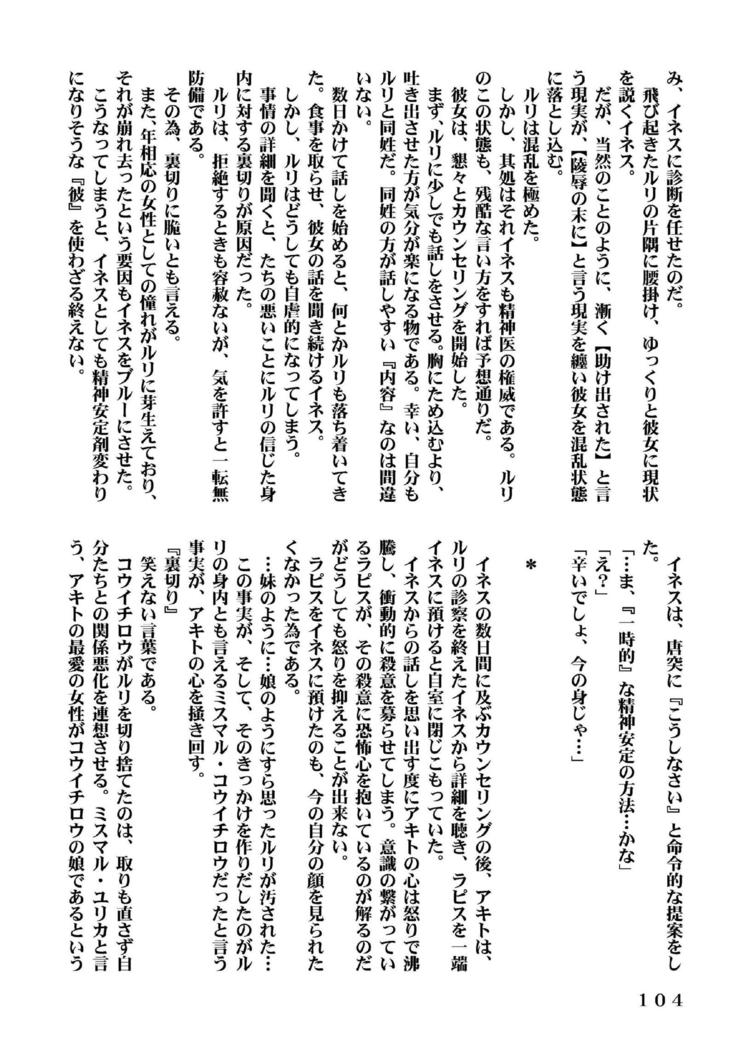 み、イネスに診断を任せたのだ。
　飛び起きたルリの片隅に腰掛け、ゆっくりと彼女に現状
を説くイネス。
　だが、当然のことのように、漸く【助け出された】と言
う現実が、【陵辱の末に】と言う現実を纏い彼女を混乱状態
に落とし込む。
　ルリは混乱を極めた。
　しかし、其処はそれイネスも精神医の権威である。ルリ
のこの状態も、残酷な言い方をすれば予想通りだ。
　彼女は、懇々とカウンセリングを開始した。
　まず、ルリに少しでも話しをさせる。胸にため込むより、
吐き出させた方が気分が楽になる物である。幸い、自分も
ルリと同姓だ。同姓の方が話しやすい『内容』なのは間違
いない。
　数日かけて話しを始めると、何とかルリも落ち着いてき
た。食事を取らせ、彼女の話を聞き続けるイネス。
　しかし、ルリはどうしても自虐的になってしまう。
　事情の詳細を聞くと、たちの悪いことにルリの信じた身
内に対する裏切りが原因だった。
　ルリは、拒絶するときも容赦ないが、気を許すと一転無
防備である。
　その為、裏切りに脆いとも言える。
　また、年相応の女性としての憧れがルリに芽生えており、
それが崩れ去ったという要因もイネスをブルーにさせた。
　こうなってしまうと、イネスとしても精神安定剤変わり
になりそうな『彼』を使わざる終えない。
　イネスは、唐突に『こうしなさい』と命令的な提案をし
た。
「…ま、『一時的』な精神安定の方法…かな」
「え？」
「辛いでしょ、今の身じゃ…」
＊
　イネスの数日間に及ぶカウンセリングの後、アキトは、
ルリの診察を終えたイネスから詳細を聴き、ラピスを一端
イネスに預けると自室に閉じこもっていた。
　イネスからの話しを思い出す度にアキトの心は怒りで沸
騰し、衝動的に殺意を募らせてしまう。意識の繋がってい
るラピスが、その殺意に恐怖心を抱いているのが解るのだ
がどうしても怒りを抑えることが出来ない。
　ラピスをイネスに預けたのも、今の自分の顔を見られた
くなかった為である。
　…妹のように…娘のようにすら思ったルリが汚された…
　この事実が、そして、そのきっかけを作りだしたのがル
リの身内とも言えるミスマル・コウイチロウだったと言う
事実が、アキトの心を掻き回す。
『裏切り』
　笑えない言葉である。
　コウイチロウがルリを切り捨てたのは、取りも直さず自
分たちとの関係悪化を連想させる。ミスマル・ユリカと言
う、アキトの最愛の女性がコウイチロウの娘であるという
104